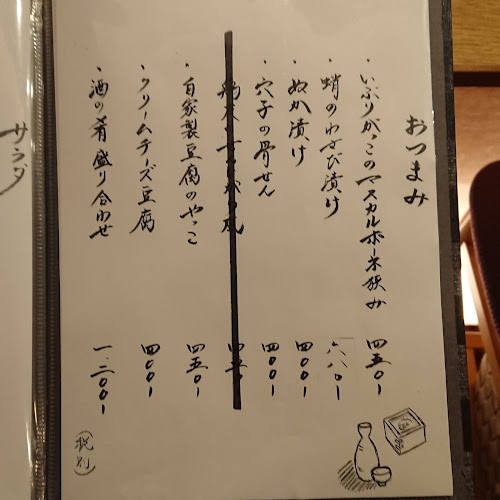 おつまみ
・いぶりがっこのマスカルポーネ挟み 四五〇ー
・蛸のわさび漬け 六八〇ー
・ぬか漬け 四〇〇ー
・穴子の骨せん 四〇〇ー
・自家製豆腐のやっこ 四五〇ー
・クリームチーズ豆腐 四〇〇ー
・酒の肴盛り合わせ 一.二〇〇ー
(税別)
サラダ